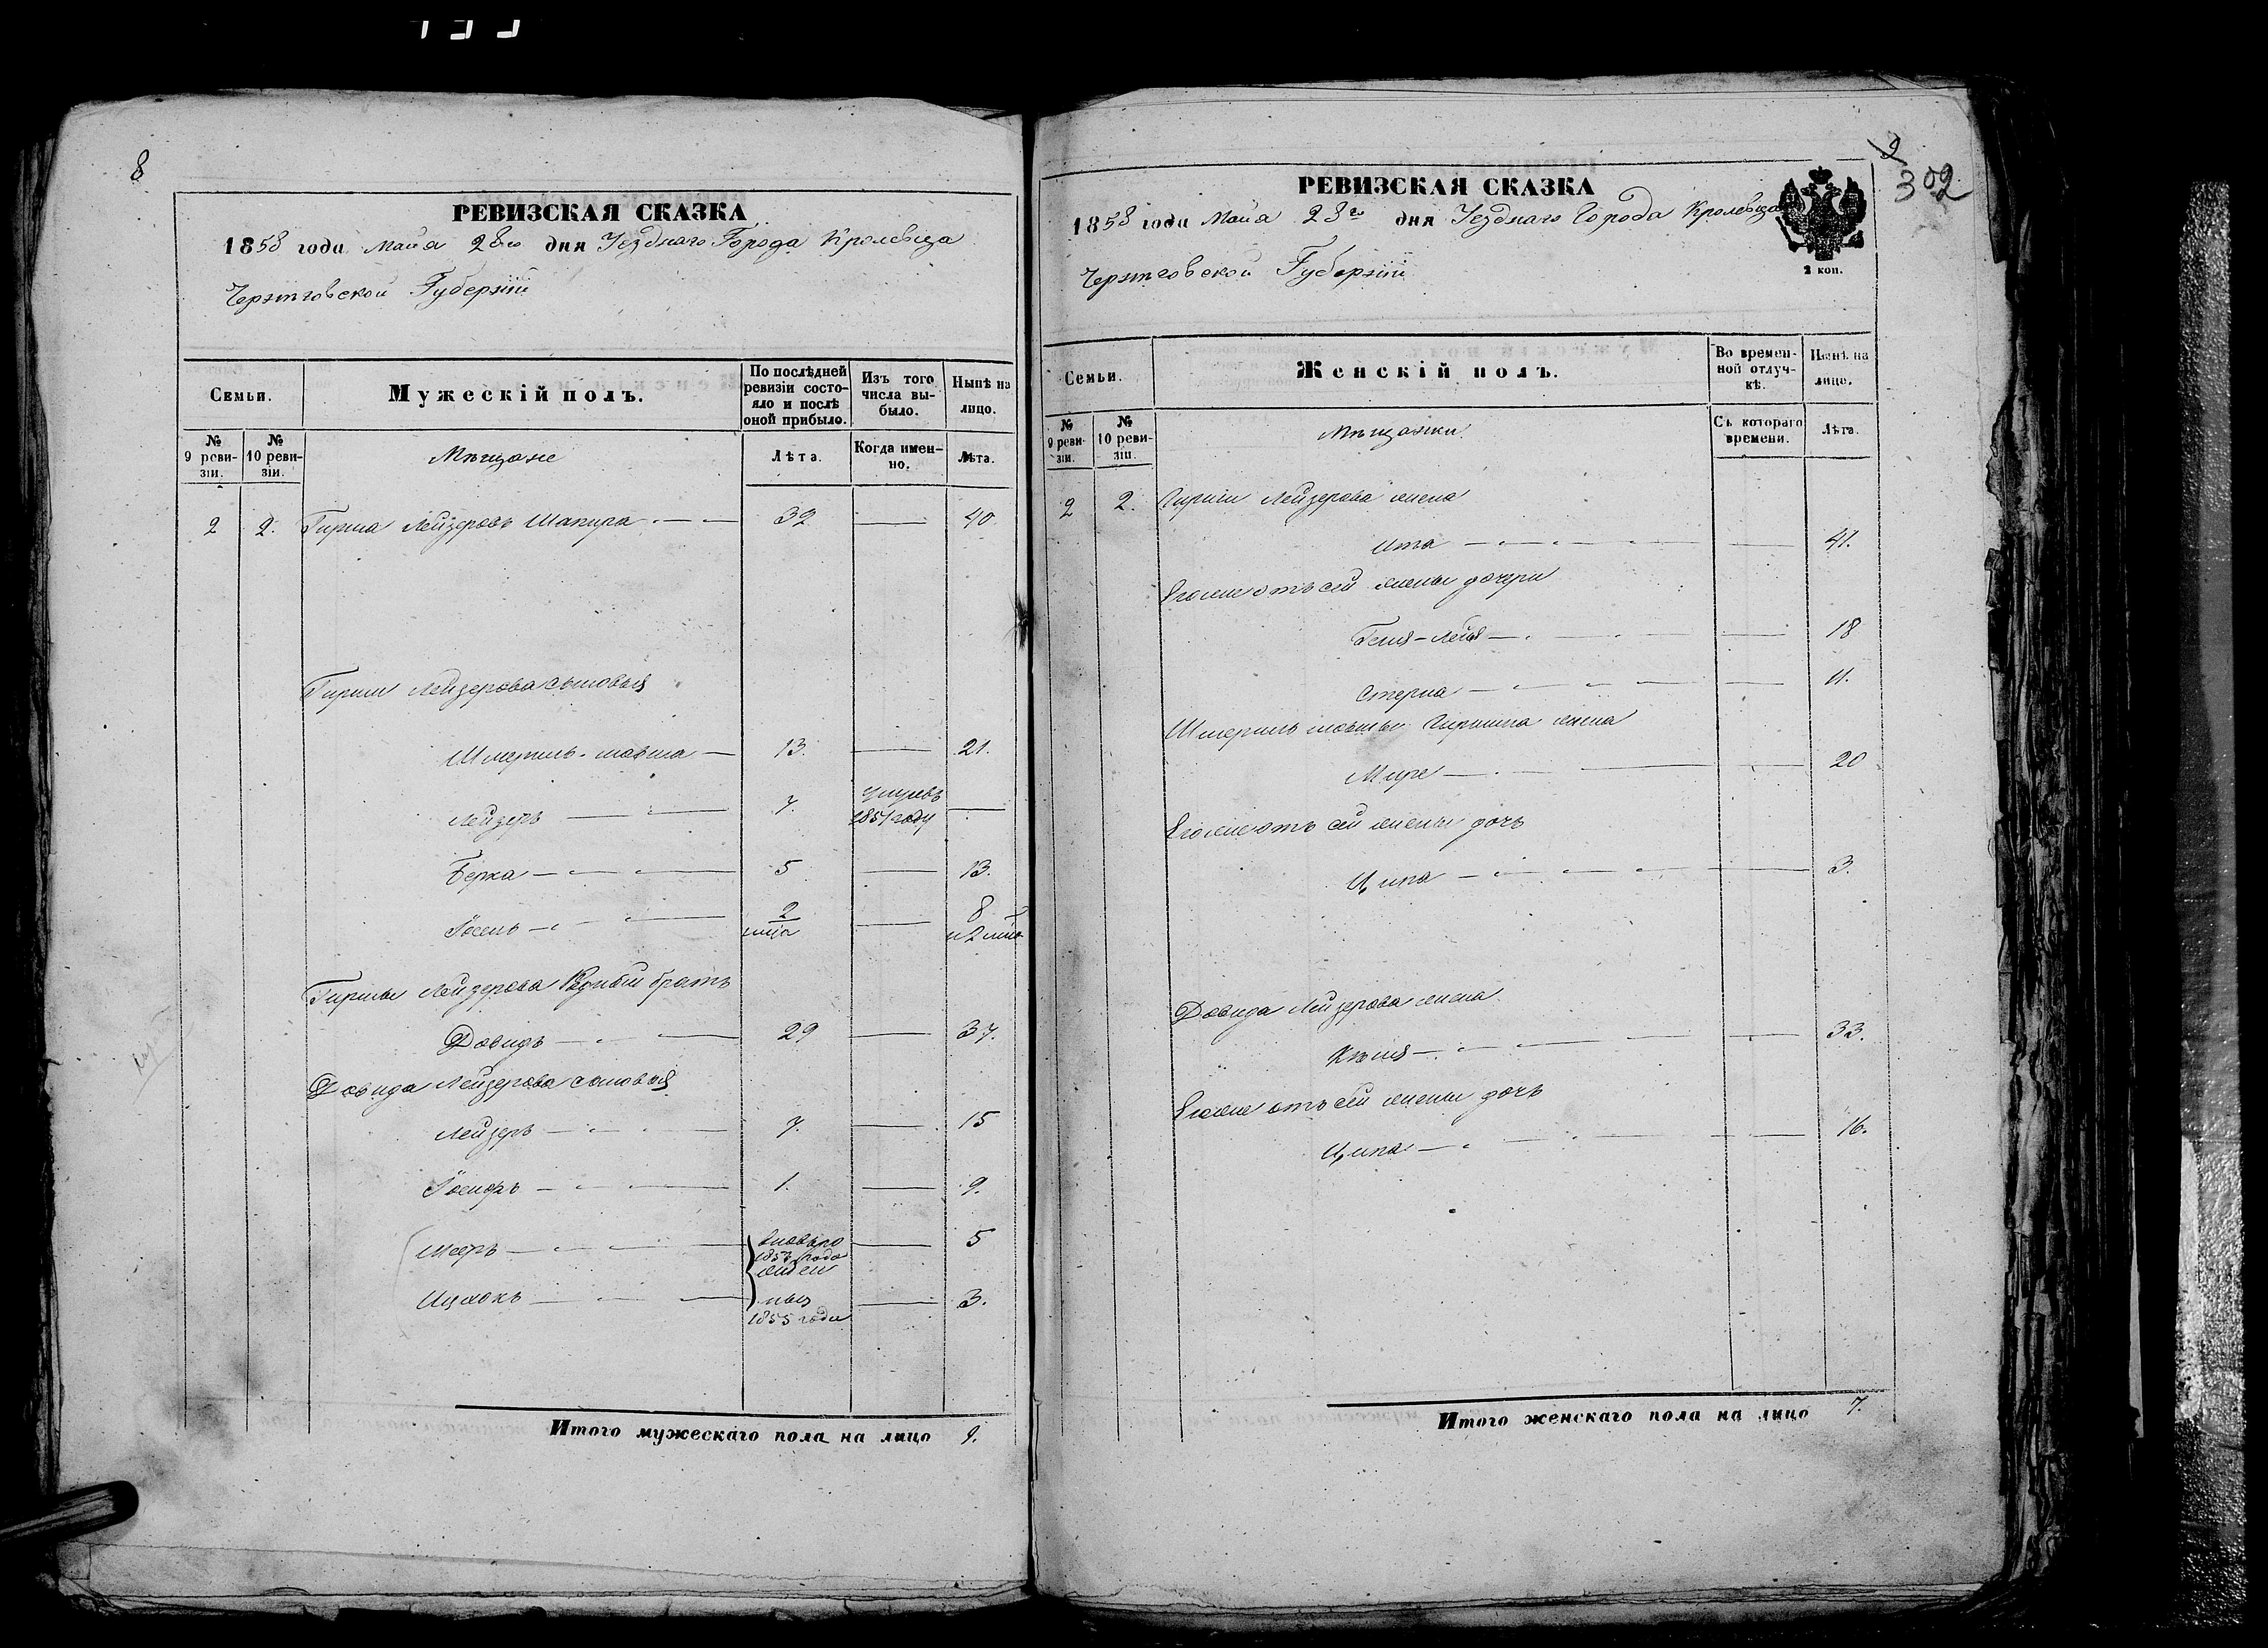 8
РЕВИЗСКАЯ СКАЗКА
1858 года Мая 28го дня Уезднаго Города Кролевца
Черниговской Губерніи
Семьи.
Мужескій полъ.
По послѣдней ревизіи состояло и послѣ оной прибыло.
Изъ того числа выбыло.
Нынѣ на лицо.
№ 9 ревизіи.
№ 10 ревизіи.
Мѣщане
Лѣта.
Когда именно.
Лѣта.
2 2. Гирша Лейзеровъ Шапира 32 40
Гирши Лейзерова сыновья
Шмериль-товша 13. 21.
Лейзеръ 7. умеръ 1851 году
Берка 5 13.
2 мца 8 и 2 мца
Гирши Лейзерова Родный братъ
Довидъ 29 37.
Довида Лейзерова сыновья
Лейзеръ 7. 15
Іосифъ 1. 9.
Мееръ 5
Ицхокъ 3.
вновь ро
1853 года
жден
ныя
1855 года
Итого мужескаго пола на лицо 9.
9
302
РЕВИЗСКАЯ СКАЗКА
1858 года Мая 28го дня Уезднаго Города Кролевца
Черниговской Губерніи
2 коп.
Семьи.
Женскій полъ.
Во временной отлучкѣ.
Нынѣ на лице.
№ 9 ревизіи.
№ 10 ревизіи.
Мѣщанки.
Съ котораго времени.
Лѣта.
2 2. Гирши Лейзерова жена
Ита 41.
Его же отъ сей жены дочери
Геня-Лея 18
Стерна 11.
Шмериль товши Гиршова жена
Мире 20
Его же отъ сей жены дочь
Ципа 3.
Довида Лейзерова жена
33.
Его же отъ сей жены дочь
Ципа 16.
Итого женскаго пола на лицо 7.